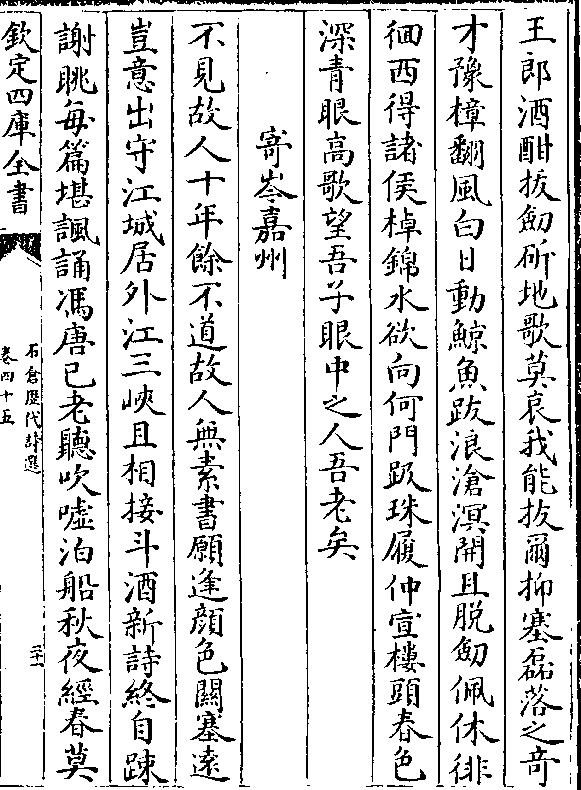 王郎酒酣拔劒斫地歌莫哀我能拔爾抑塞磊落之竒
才豫樟翻風白日動鯨魚跋浪滄溟開且脱劒佩休徘
徊西得諸侯棹錦水欲向何門趿珠履仲宣樓頭春色
深青眼高歌望吾子眼中之人吾老矣
寄岑嘉州
不見故人十年餘不道故人無素書願逢顔色關塞逺
豈意出守江城居外江三峽且相接斗酒新詩終自踈
謝朓毎篇堪諷誦馮唐已老聽吹嘘泊船秋夜經春莫
欽定四庫全書
石倉歴代詩選
卷四十五
三十一